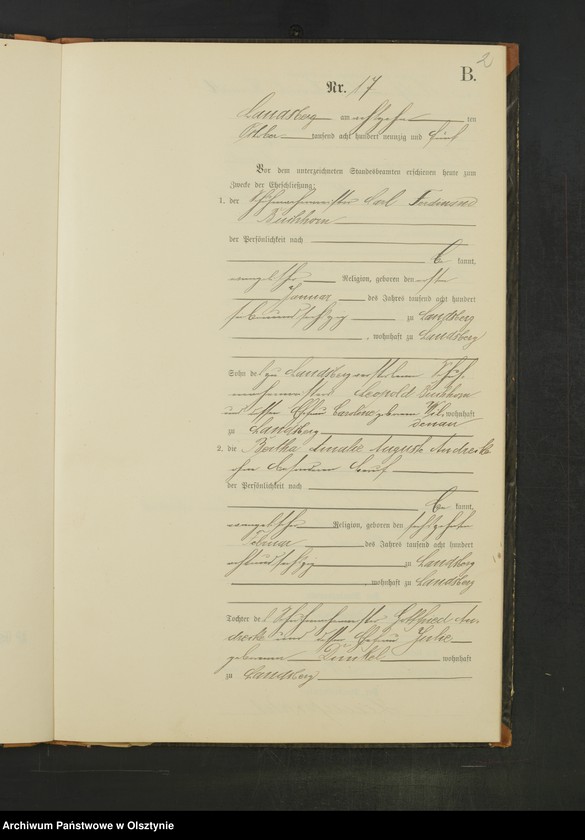 2
B.
Nr. 17
Landsberg am achtzehn ten
Oktober tausend acht hundert neunzig und fünf
Vor dem unterzeichneten Standesbeamten erschienen heute zum
Zwecke der Eheschließung:
1. der Schuhmachermeister Carl Ferdinand
Buchhorn
der Persönlichkeit nach
be kannt,
evangelischer Religion, geboren den ersten
Januar des Jahres tausend acht hundert
siebenundsechzig zu Landsberg
, wohnhaft zu Landsberg
Sohn des zu Landsberg verstorbenen Schuh-
machermeisters Leopold Buchhorn
und dessen Ehefrau Caroline geborenen wohnhaft
zu Landsberg
2. die Bertha Amalie Auguste Andreske
ohne besonderen Beruf
der Persönlichkeit nach
be kannt,
evangelischer Religion, geboren den sechszehnten
Februar des Jahres tausend acht hundert
achtundsechzig zu Landsberg
, wohnhaft zu Landsberg
Tochter des Schuhmachermeister Gottfried An-
dreske und dessen Ehefrau Julie
geborenen Dunkel wohnhaft
zu Landsberg
Archiwum Państwowe w Olsztynie